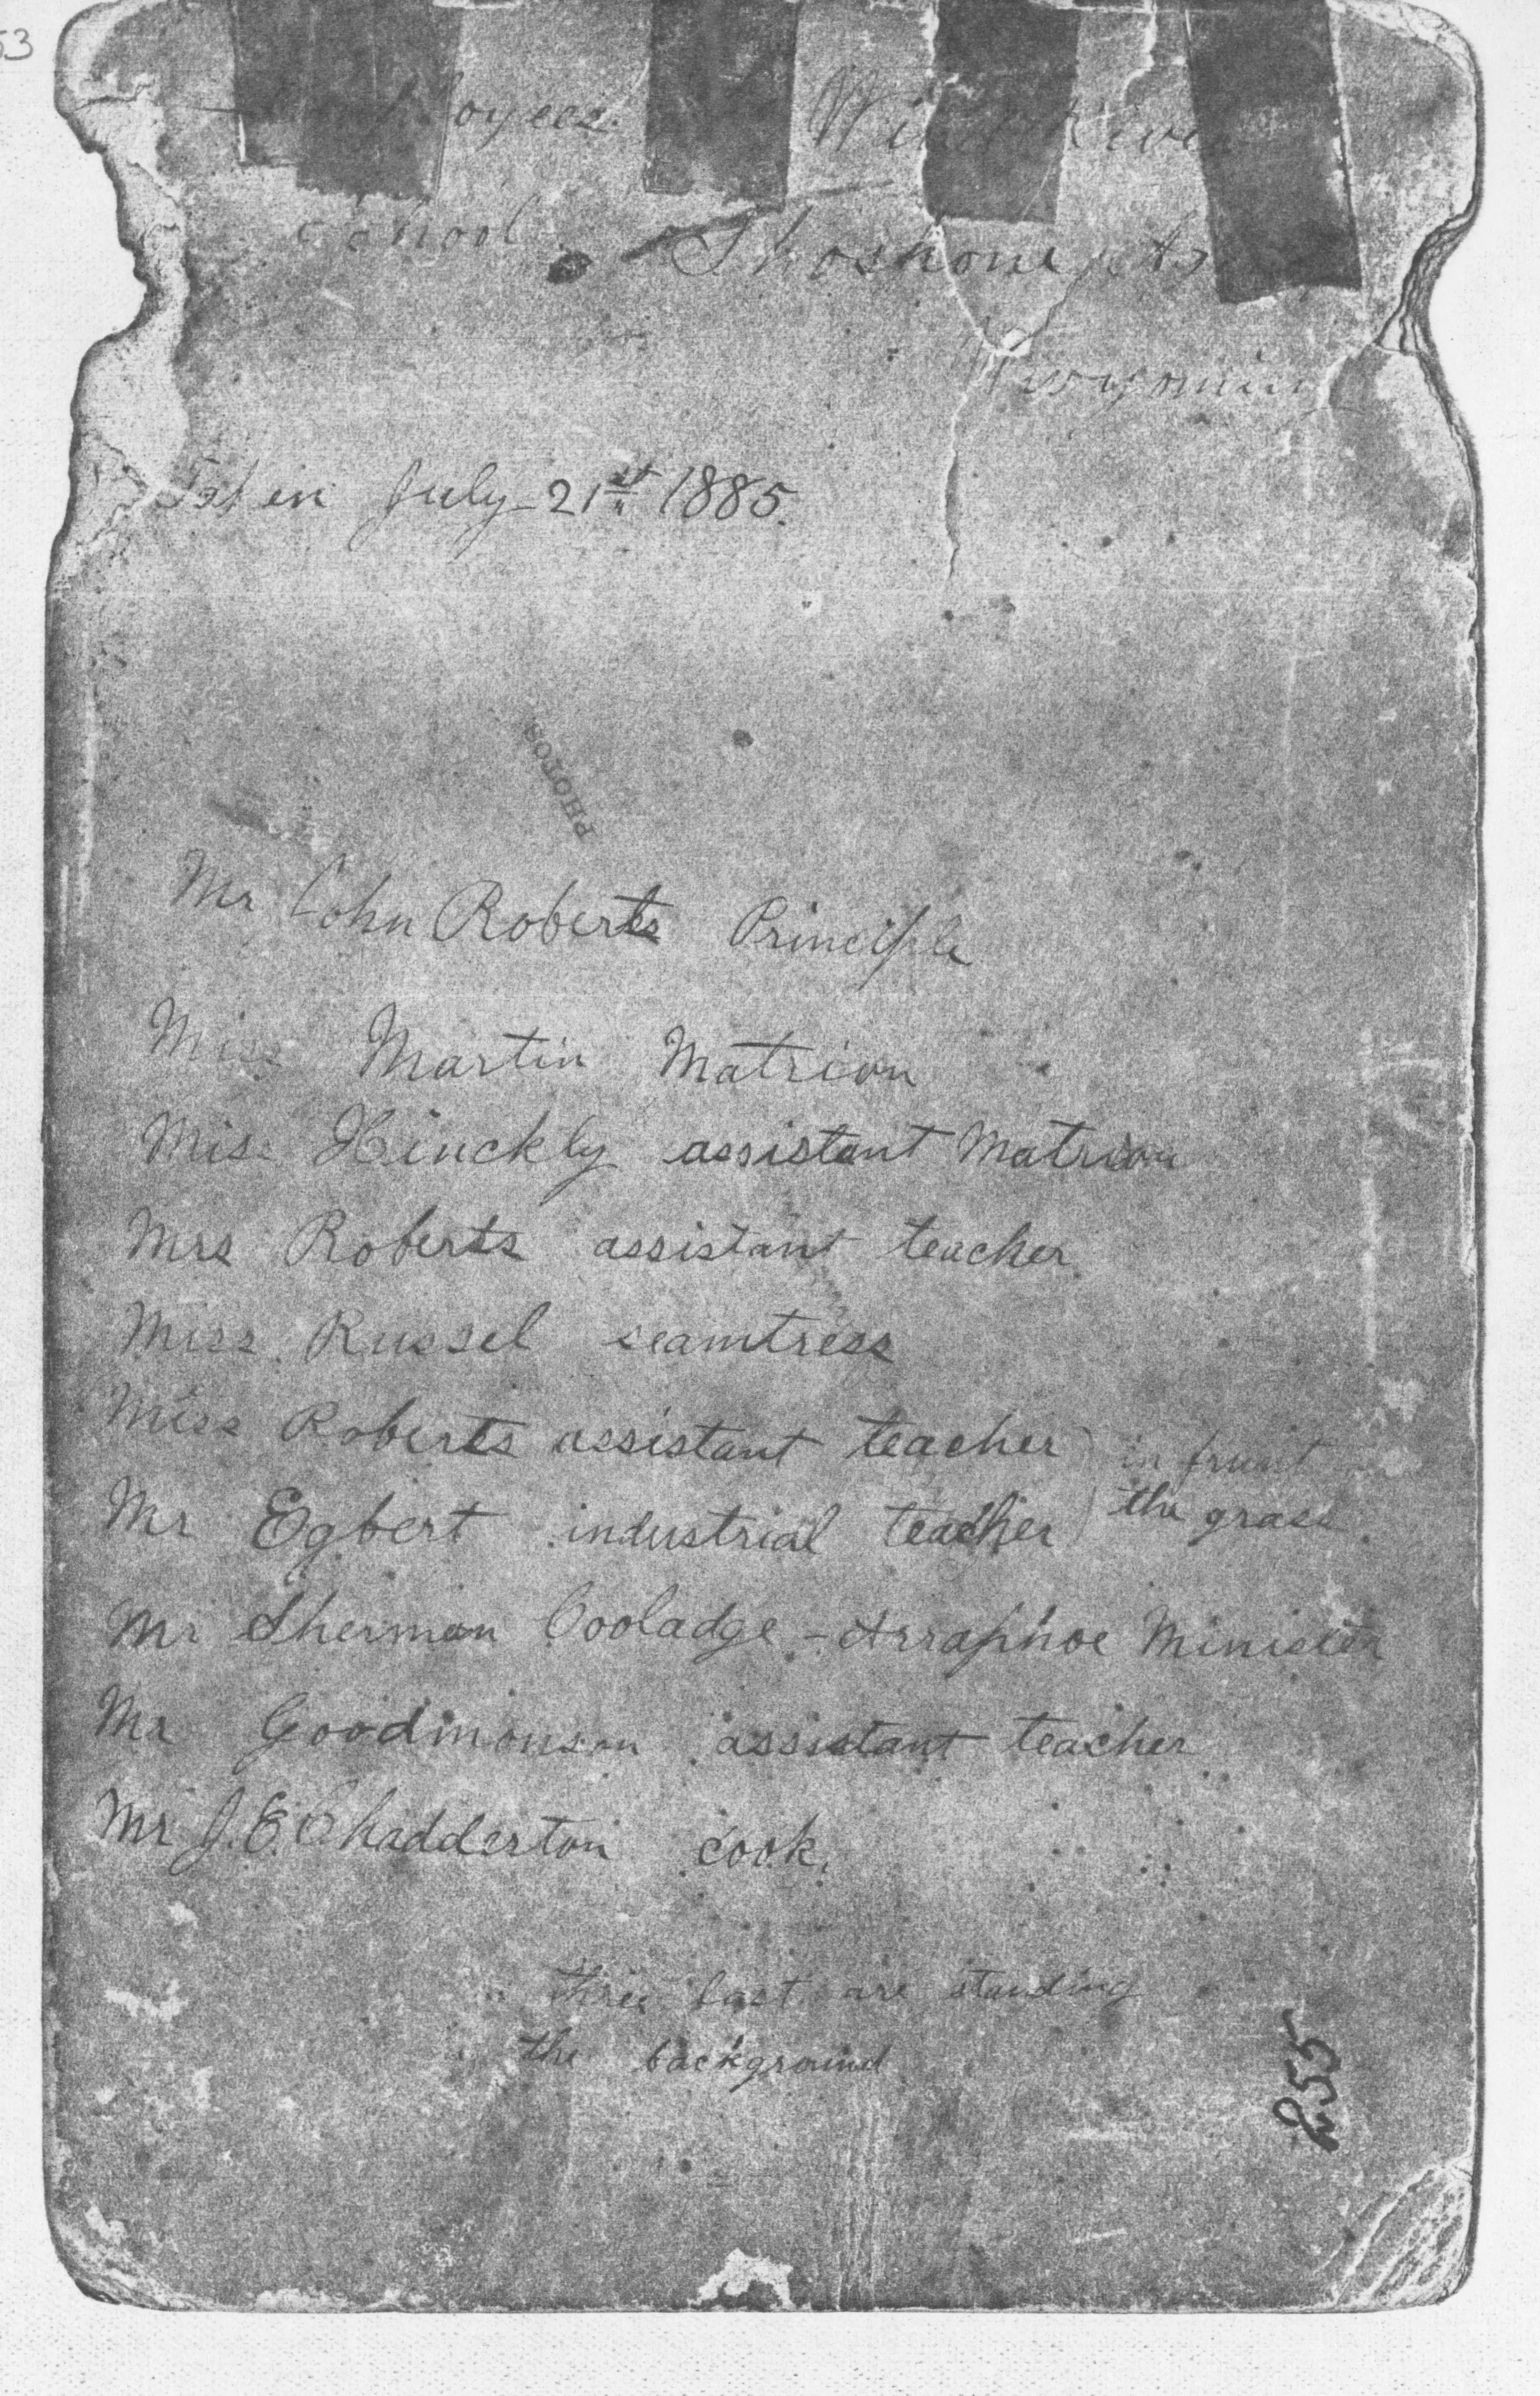 53
Employees Wind River
School Shoshone
Wyoming
Taken July 21st 1885.
PHOTOS
Mr John Roberts Principle
Miss Martin Matrion
Miss Hinckly assistant Matrion
Mrs Roberts assistant teacher
Miss Russel seamtress
Miss Roberts assistant teacher ) in frunt
Mr Egbert industrial teacher ) the grass.
Mr Sherman Cooladge - Arraphoe Minister
Mr Goodmonson assistant teacher
Mr J.E. Chadderton cook.
three last are standing
the background
255